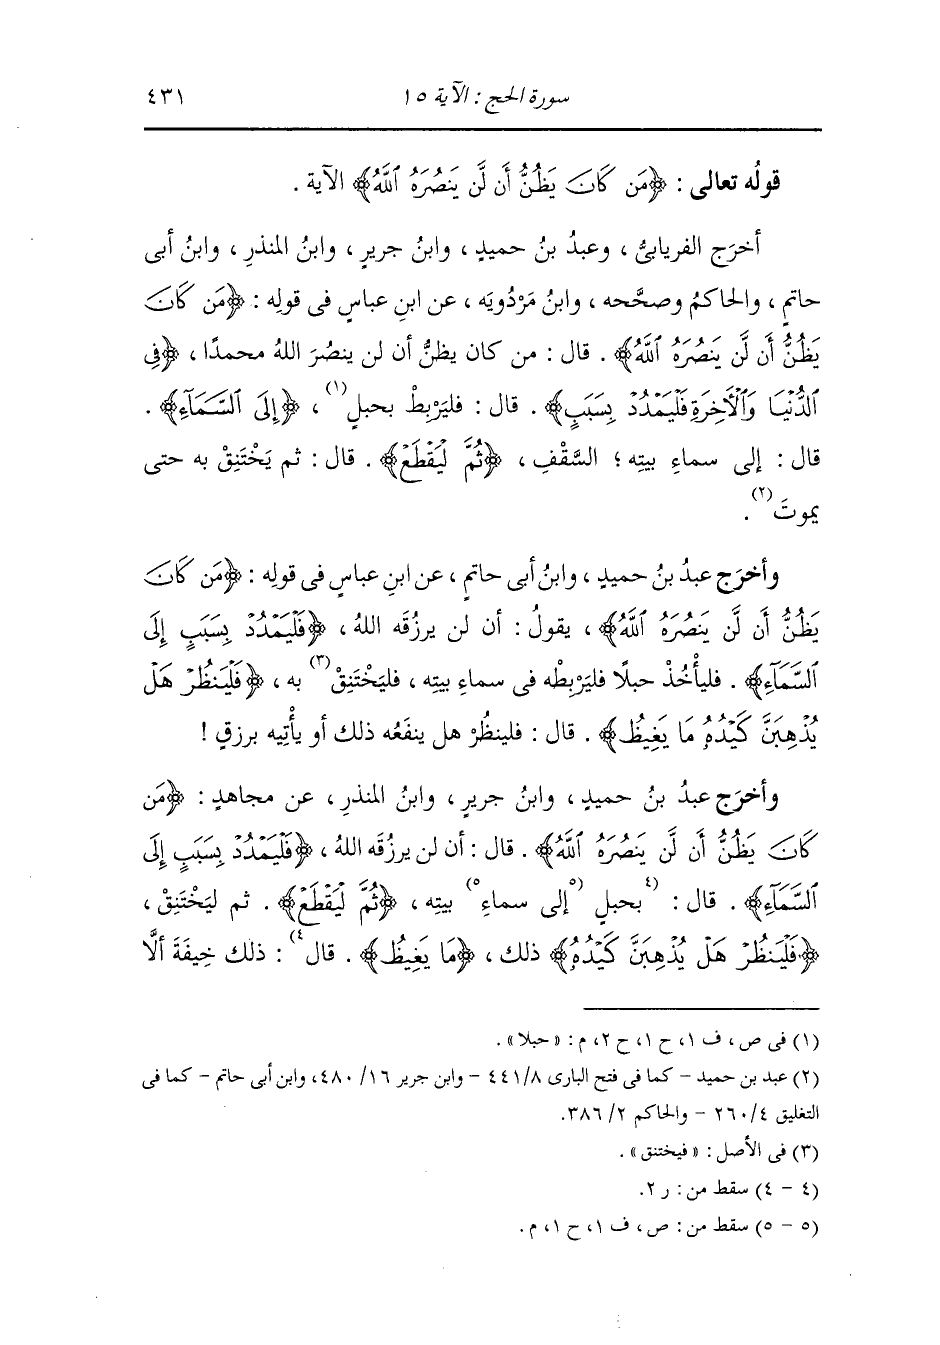 سورة الحج : الآية ١٥ ٤٣١
قولُه تعالى : ﴿مَن كَانَ يَظُنُّ أَن لَّن يَنصُرَهُ ٱللَّهُ﴾ الآية .
أخرَج الفريابىُّ ، وعبدُ بنُ حميدٍ ، وابنُ جريرٍ ، وابنُ المنذرِ ، وابنُ أبى
حاتمٍ ، والحاكمُ وصحَّحه ، وابنُ مَرْدُويَه ، عن ابنِ عباسٍ فى قولِه : ﴿مَن كَانَ
يَظُنُّ أَن لَّن يَنصُرَهُ ٱللَّهُ﴾ . قال : من كان يظنُّ أن لن ينصُرَ اللهُ محمدًا ، ﴿فِى
ٱلدُّنْيَا وَٱلْأَخِرَةِ فَلْيَمْدُدْ بِسَبَبٍ﴾ . قال : فليَرْبِطْ بحبلٍ(١) ، ﴿إِلَى ٱلسَّمَآءِ﴾ .
قال : إلى سماءِ بيتِه ؛ السَّقْفِ ، ﴿ثُمَّ لْيَقْطَعْ﴾ . قال : ثم يَخْتَنِقْ به حتى
يموتَ(٢) .
وأخرَج عبدُ بنُ حميدٍ ، وابنُ أبى حاتمٍ ، عن ابنِ عباسٍ فى قولِه : ﴿مَن كَانَ
يَظُنُّ أَن لَّن يَنصُرَهُ ٱللَّهُ﴾ ، يقولُ : أن لن يرزُقَه اللهُ ، ﴿فَلْيَمْدُدْ بِسَبَبٍ إِلَى
ٱلسَّمَآءِ﴾ . فليأْخُذْ حبلًا فليَرْبِطْه فى سماءِ بيتِه ، فليَخْتَنِقْ(٣) به ، ﴿فَلْيَنظُرْ هَلْ
يُذْهِبَنَّ كَيْدُهُۥ مَا يَغِيظُ﴾ . قال : فلينظُرْ هل ينفَعُه ذلك أو يأْتِيه برزقٍ !
وأخرَج عبدُ بنُ حميدٍ ، وابنُ جريرٍ ، وابنُ المنذرِ ، عن مجاهدٍ : ﴿مَن
كَانَ يَظُنُّ أَن لَّن يَنصُرَهُ ٱللَّهُ﴾ . قال : أن لن يرزُقَه اللهُ ، ﴿فَلْيَمْدُدْ بِسَبَبٍ إِلَى
ٱلسَّمَآءِ﴾ . قال : (٤بحبلٍ (٥إلى سماءِ٥) بيتِه ، ﴿ثُمَّ لْيَقْطَعْ﴾ . ثم ليَخْتَنِقْ ،
﴿فَلْيَنظُرْ هَلْ يُذْهِبَنَّ كَيْدُهُۥ﴾ ذلك ، ﴿مَا يَغِيظُ﴾ . قال٤) : ذلك خِيفَةَ ألَّا
(١) فى ص ، ف ١، ح ١، ح ٢، م : « حبلا» .
(٢) عبد بن حميد – كما فى فتح البارى ٤٤١/٨ – وابن جرير ١٦/ ٤٨٠، وابن أبى حاتم – كما فى
التغليق ٢٦٠/٤ – والحاكم ٢/ ٣٨٦.
(٣) فى الأصل : « فيختنق » .
(٤ – ٤) سقط من : ر ٢.
(٥ – ٥) سقط من : ص ، ف ١، ح ١، م .